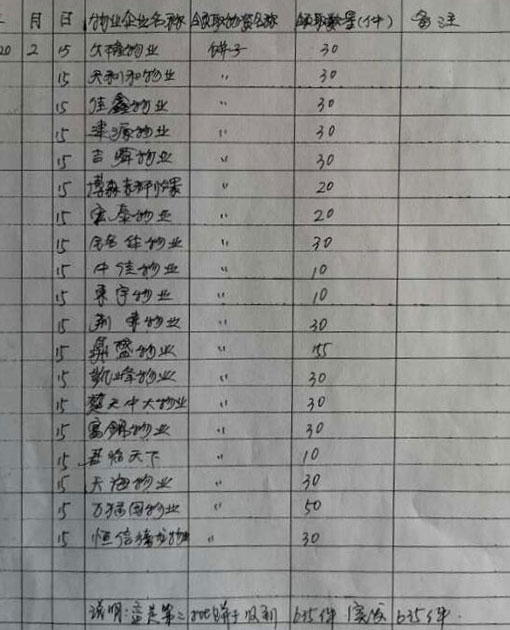 月 日 物业企业名称 领取物资名称 领取数量(件) 备注
20 2 15 久隆物业 饼子 30
15 天利和物业 〃 30
15 佳鑫物业 〃 30
15 物业 〃 30
15 吉舜物业 〃 30
15 〃 20
15 宏泰物业 〃 20
15 物业 〃 30
15 中佳物业 〃 10
15 东宇物业 〃 10
15 物业 〃 30
15 鼎盛物业 〃
15 凯峰物业 〃 30
15 楚天中大物业 〃 30
15 富锦物业 〃 30
15 君临天下 〃 10
15 天海物业 〃 30
15 万 国物业 〃 50
15 恒信 物业 〃 30
说明: 第二批饼子收到 635件 实发 635件.